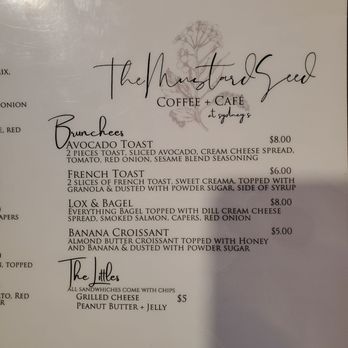 IX,
ONION
E, RED
N,
APERS
N, TOPPED
ATO, RED
The Mustard Seed
COFFEE + CAFÉ
at sydney's
Brunchees
AVOCADO TOAST $8.00
2 PIECES TOAST, SLICED AVOCADO, CREAM CHEESE SPREAD,
TOMATO, RED ONION, SESAME BLEND SEASONING
FRENCH TOAST $6.00
2 SLICES OF FRENCH TOAST, SWEET CREAMA, TOPPED WITH
GRANOLA & DUSTED WITH POWDER SUGAR, SIDE OF SYRUP
LOX & BAGEL $8.00
EVERYTHING BAGEL TOPPED WITH DILL CREAM CHEESE
SPREAD, SMOKED SALMON, CAPERS, RED ONION
BANANA CROISSANT $5.00
ALMOND BUTTER CROISSANT TOPPED WITH HONEY
AND BANANA & DUSTED WITH POWDER SUGAR
The Littles
ALL SANDWHICHES COME WITH CHIPS
GRILLED CHEESE $5
PEANUT BUTTER + JELLY